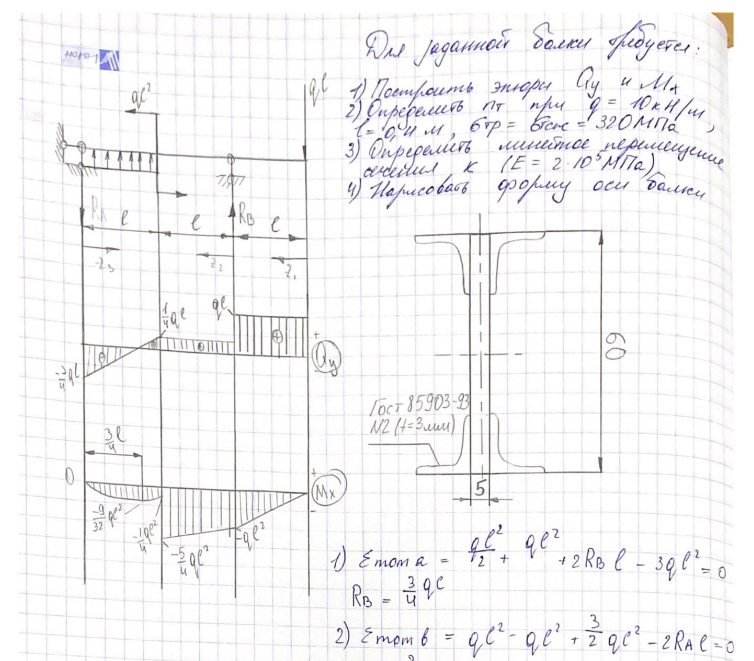 Для заданной балки требуется:
1) Построить эпюры Qy и Mx
2) Определить nт при q = 10 кН/м,
l = 0,4 м, бтр = бтсж = 320 МПа
3) Определить линейное перемещение
сечения к (E = 2·10⁵ МПа)
4) Нарисовать форму оси балки
ql²
ql
RA
l
RB
l
l
z3
z2
z1
1/4 ql
ql
+
Qy
-3/4 ql
3/4 l
0
+
Mx
-
-9/32 ql²
-1/4 ql²
-5/4 ql²
-ql²
60
Гост 85903-93
N2 (t=3мм)
5
1) Σmom a = ql²/2 + ql² + 2RB l - 3ql² = 0
RB = 3/4 ql
2) Σmom b = ql² - ql² + 3/2 ql² - 2RA l = 0